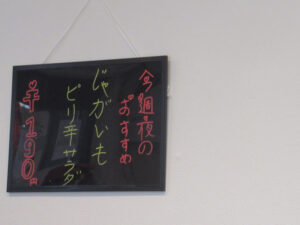 今週夜の
おすすめ
じゃがいも
ピリ辛サラダ
¥190円